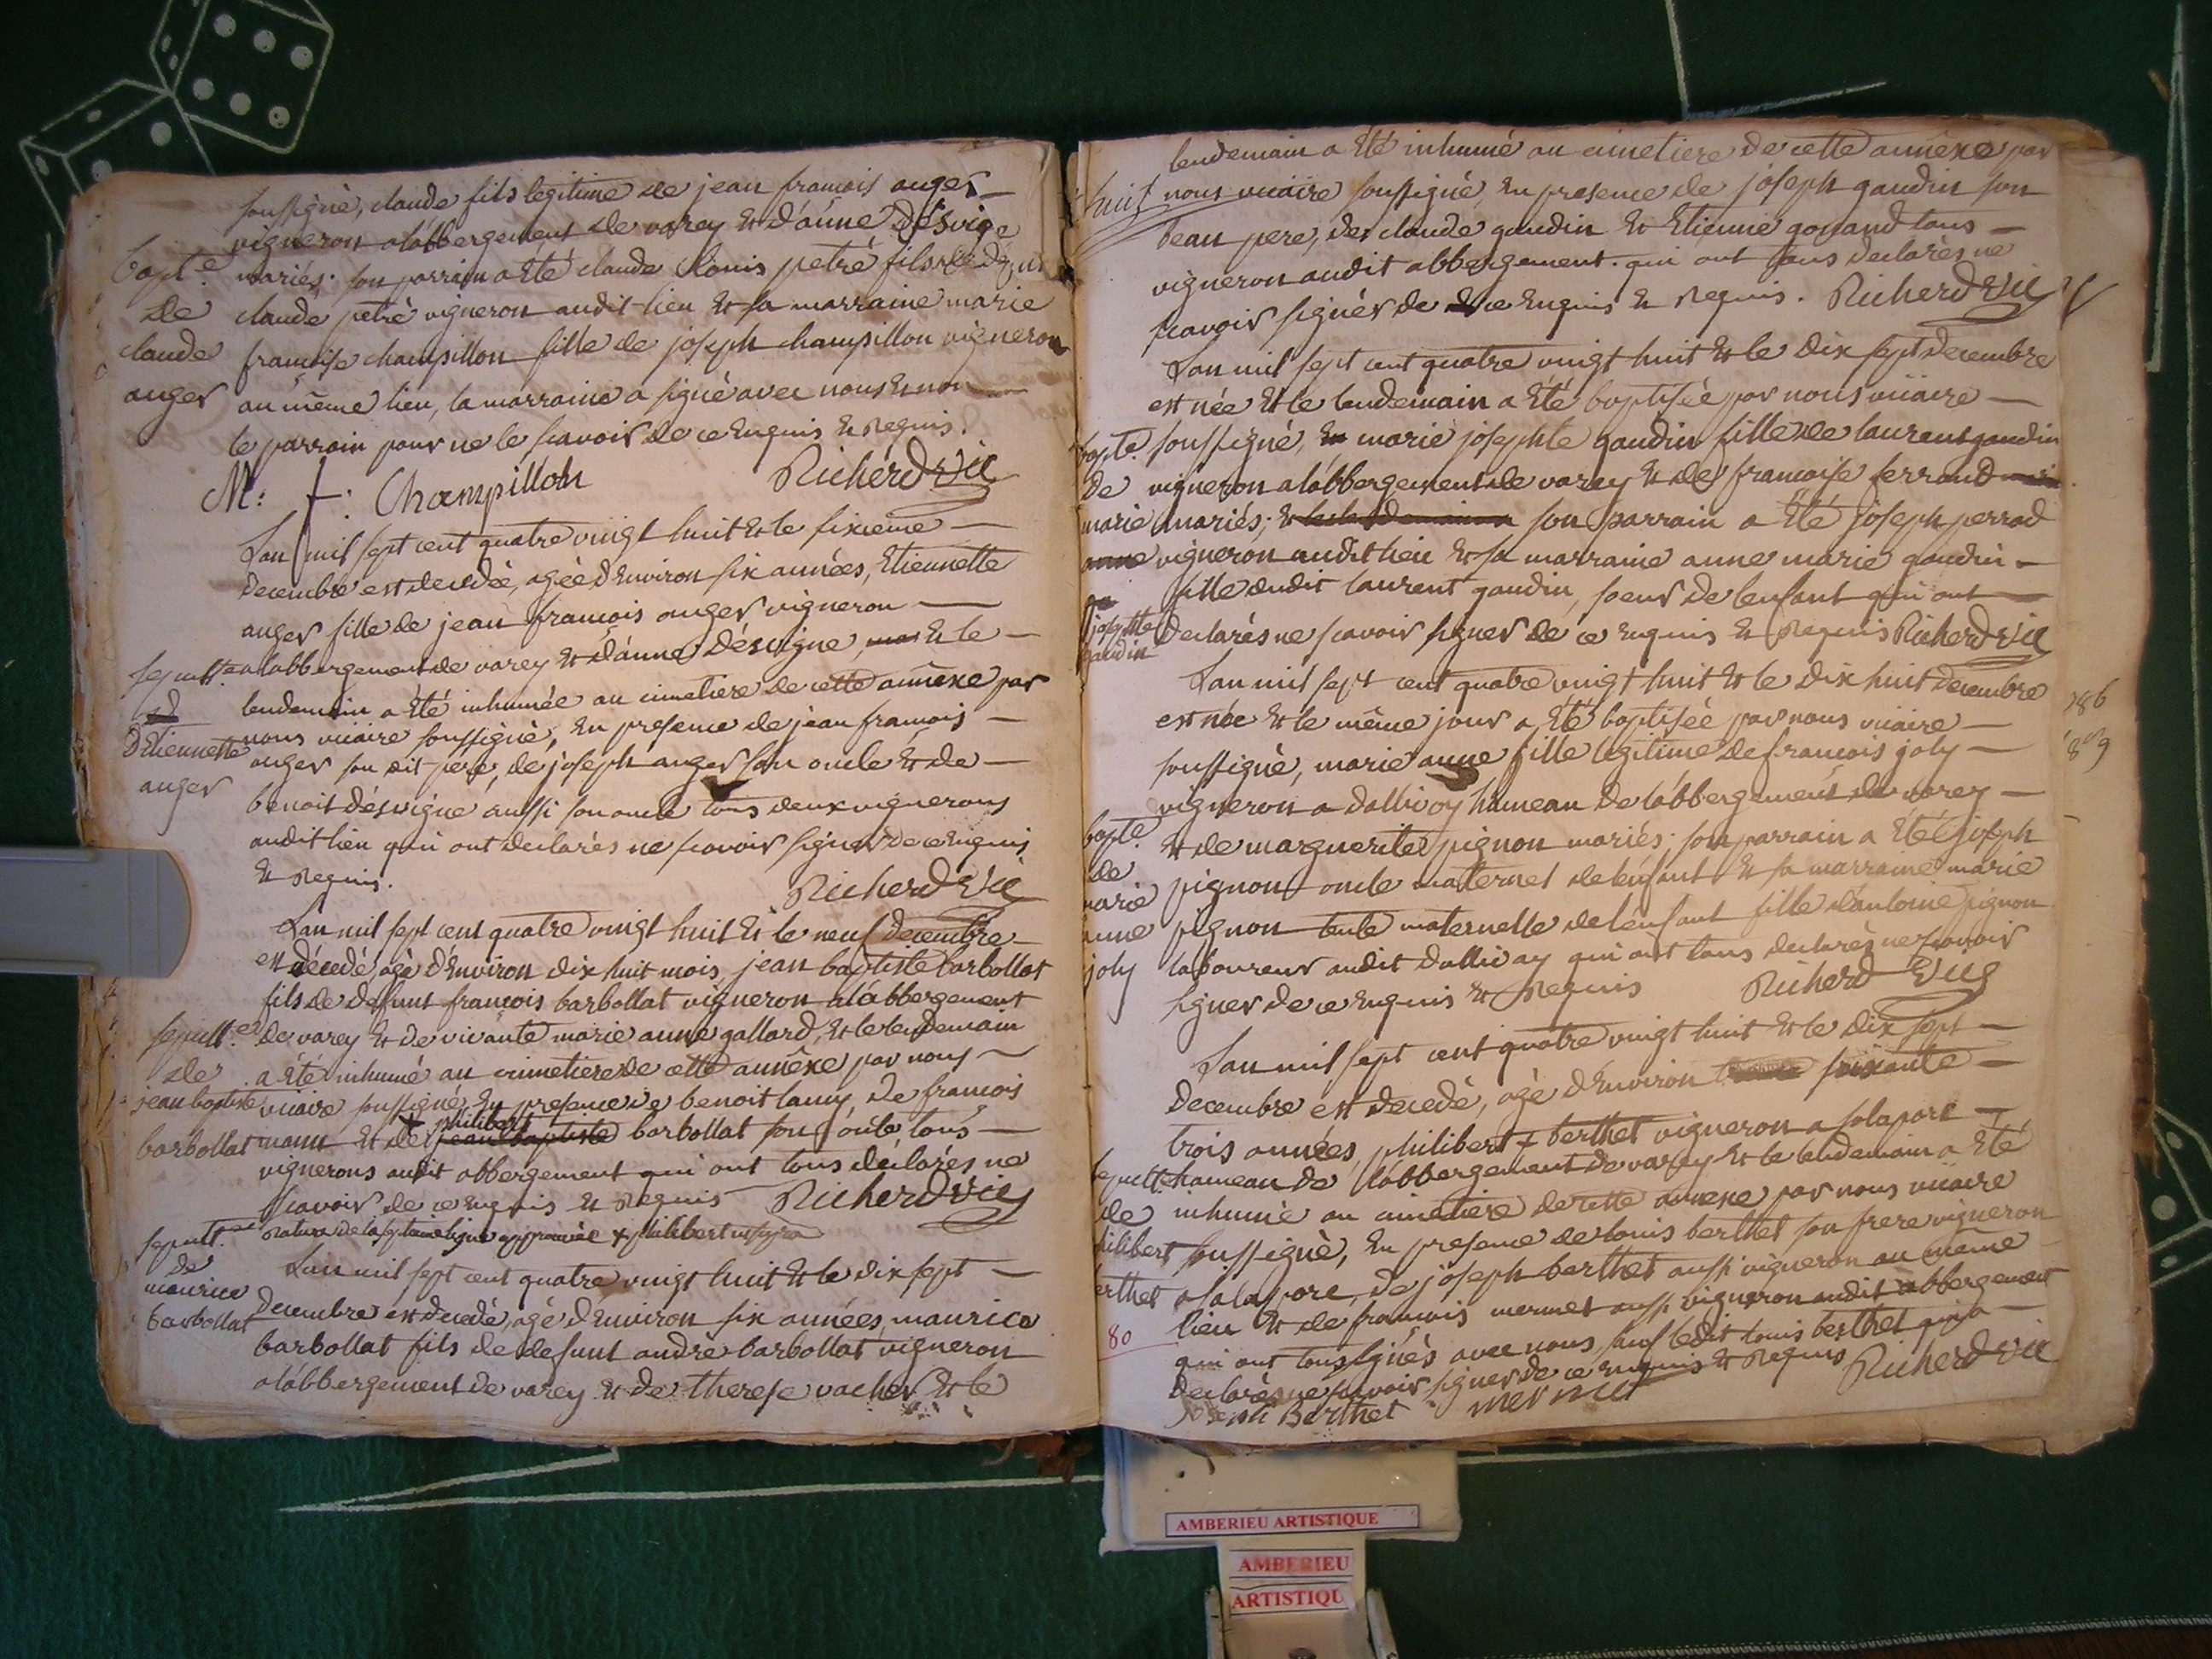 soussigné, claude fils legitime de jean francois auger
vigneron alábbergement de varey et d'anne désvigne
mariés; son parrain a Eté claude Louis petré fils de
claude petré vigneron audit lieu et sa marraine marie
francoise champillon fille de joseph champillon vigneron
au même lieu, la marraine a signé avec nous et non
le parrain pour ne le scavoir de ce Enquis et Requis.
bapt.e
de
claude
auger
M: f: Champillon Richerd vic
Lan mil sept cent quatre vingt huit et le sixieme
decembre est decedée, agée d'Environ six années, Etiennette
auger fille de jean francois auger vigneron
alabbergement de varey et d'anne désvigne, et le
lendemain a Eté inhumée au cimetiere de cette annêxe par
nous vicaire soussigné, En presence de jean francois
auger son dit pere, de joseph auger son oncle et de
benoit désvigne aussi son oncle tous deux vignerons
audit lieu qui ont declarés ne scavoir signer de ce Enquis
et Requis. Richerd Vic
sepult.re
d'Etiennette
auger
Lan mil sept cent quatre vingt huit et le neuf decembre
est décedé agé d'Environ dix huit mois, jean baptiste barbollat
fils de defunt françois barbollat vigneron alábbergement
de varey et de vivante marie anne gallard, et le lendemain
a Eté inhumé au cimetiere de cette annêxe par nous
vicaire soussigné En presence de benoit lamy, de francois
et de philibert jean baptiste barbollat son oncle tous
vignerons audit abbergement qui ont tous declarés ne
scavoir de ce Enquis et Requis Richerd vic
sepult.re
de
jean baptiste
barbollat
Rature de la septieme ligne approuvée + philibert
sepult.re
de
maurice
barbollat
Lan mil sept cent quatre vingt huit et le dix sept
decembre est decedé, agé d'Environ six années, maurice
barbollat fils de defunt andré barbollat vigneron
alábbergement de varey et de therese vacher et le
lendemain a Eté inhumé au cimetiere de cette annêxe par
nous vicaire soussigné, En presence de joseph gaudin son
beau pere, de claude gaudin et Etienne gonand tous
vigneron audit abbergement. qui ont tous declarés ne
scavoir signer de ce Enquis et Requis. Richerd Vic
huit
Lan mil sept cent quatre vingt huit et le dix sept decembre
est née et le lendemain a Eté baptisée par nous vicaire
soussigné, marie josephte gaudin fille de laurent gaudin
vigneron alábbergement de varey et de francoise ferrand
mariés; et le lendemain son parrain a Eté joseph perrad
vigneron audit lieu et sa marraine anne marie gaudin
fille dudit laurent gaudin, soeur de lenfant qui ont
declarés ne scavoir signer de ce Enquis et Requis Richerd Vic
bapte.
De
marie
anne
josephte
gaudin
Lan mil sept cent quatre vingt huit et le dix huit decembre
est née et le même jour a Eté baptisée par nous vicaire
soussigné, marie anne fille legitime de francois joly
vigneron a dallivoy hameau de lábbergement de varey
et de marguerite pignon mariés; son parrain a Eté joseph
pignon oncle maternel de lénfant et sa marraine marie
pignon tante maternelle de lénfant fille d'antoine pignon
laboureur audit dallivay qui ont tous declarés ne scavoir
signer de ce Enquis et Requis Richerd Vic
bapte.
de
marie
anne
joly
Lan mil sept cent quatre vingt huit et le dix sept
decembre est decedé, agé d'Environ soixante
trois années, philibert + berthet vigneron a salaport
hameau de lábbergement de varey et le lendemain a Eté
inhumé au cimetiere de cette annexe par nous vicaire
soussigné, En presence de louis berthet son frere vigneron
a salapore, de joseph berthet aussi vigneron au même
lieu et de francois mermet aussi vigneron audit abbergement
qui ont tous signés avec nous sauf ledit louis berthet qui a
declaré ne scavoir signer de ce enquis et Requis Richerd Vic
sepult.
de
philibert
berthet
80
Joseph Berthet mermet
AMBERIEU ARTISTIQUE
AMBERIEU
ARTISTIQU